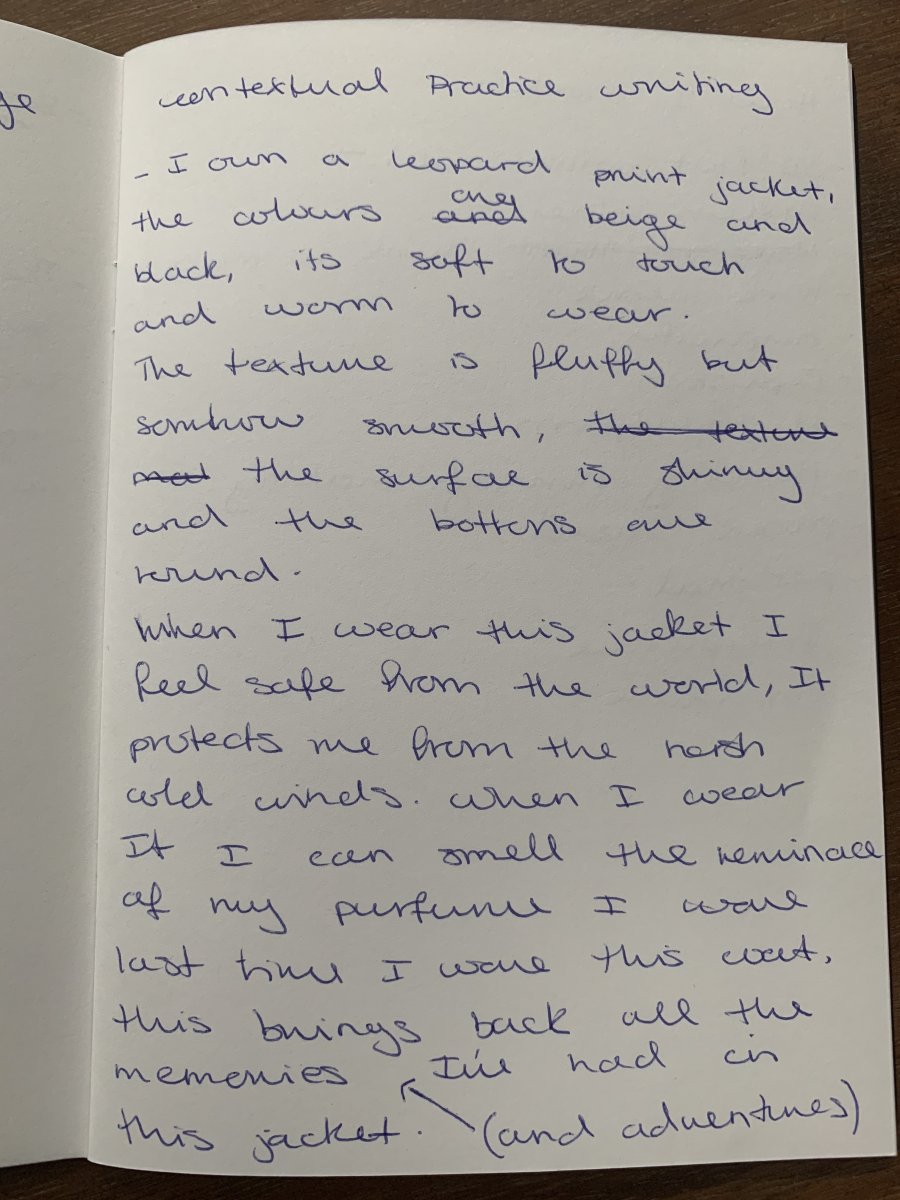 ge
contextual Practice writing
- I own a leopard print jacket,
the colours and are beige and
black, its soft to touch
and warm to wear.
The texture is fluffy but
somhow smooth, the texture
the surfae is shinny
and the bottons are
round.
When I wear this jacket I
feel safe from the world, It
protects me from the harsh
cold winds. when I wear
It I can smell the reminace
of my purfume I wore
last time I wore this coat,
this brings back all the
memories I've had in
this jacket. (and adventures)